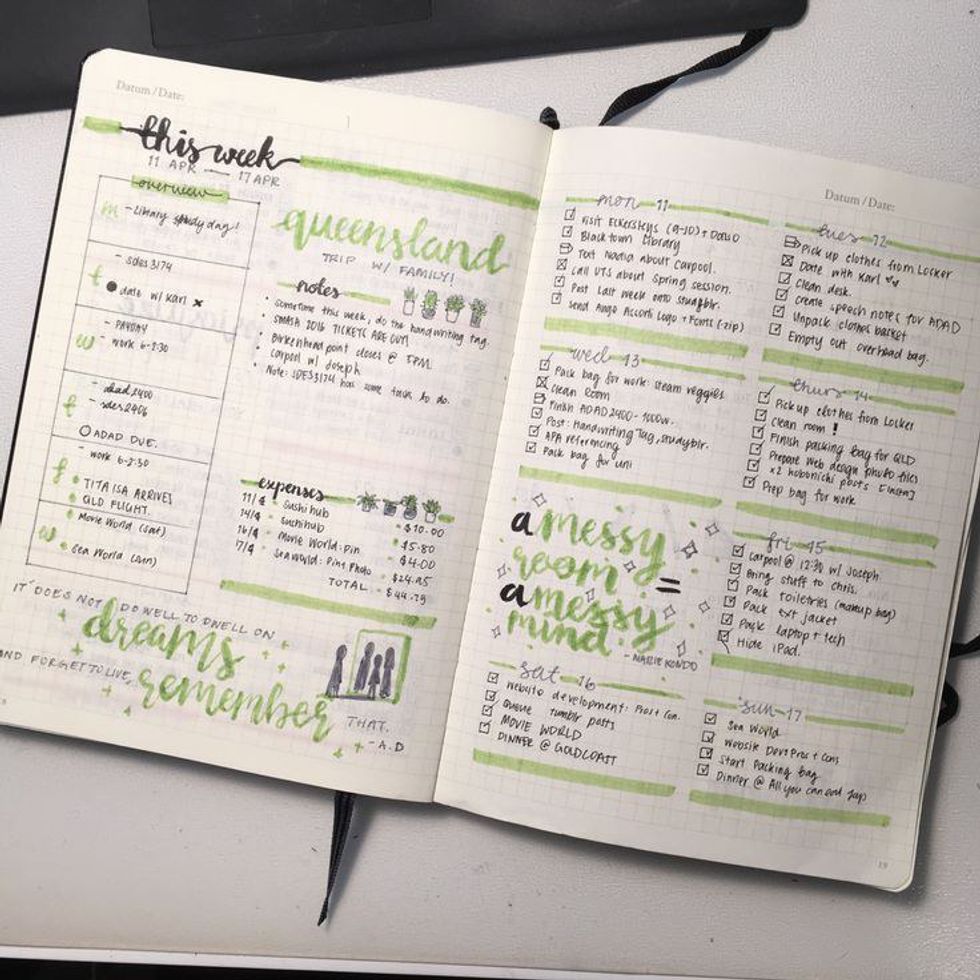 Datum / Date:
this week
11 APR — 17 APR
overview
m
- Library study day!
t
- sdes3174
date w/ karl
w
- PAYDAY
- work 6-9:30
t
- adad2400
- sdes2406
ADAD DUE.
f
- work 6-9:30
TITA ISA ARRIVES
QLD FLIGHT.
w
Movie World (sat)
Sea World (sun)
queensland
TRIP W/ FAMILY!
notes
• Sometime this week, do the handwriting tag.
• SMASH 2016 TICKETS ARE OUT!
• Birkenhead point closes @ 5PM.
• Carpool w/ Joseph
• Note: SDES3174 has some task to do.
expenses
11/4 - Sushi hub - $10.00
14/4 - Sushihub - $5.80
16/4 - Movie World: Pin - $4.00
17/4 - Sea World: Pint Photo - $24.95
TOTAL - $44.75
IT DOES NOT DO WELL TO DWELL ON
dreams
AND FORGET TO LIVE,
remember
THAT.
- A.D
Datum / Date:
mon 11
Visit Eckersleys (9-10) + Daiso
Blacktown Library
Text Nadia about Carpool.
Call UTS about Spring session.
Post last week onto studyblr.
Send Ango Accorti Logo + Fonts (.zip)
tues 12
Pick up clothes from Locker
Date with Karl
Clean desk.
Create speech notes for ADAD
Unpack clothes basket
Empty out overhead bag.
wed 13
Pack bag for work: steam veggies
Clean Room
Finish ADAD2400 - 1000w.
Post: Handwriting Tag, studyblr.
APA referencing
Pack bag for uni
thurs 14
Pick up clothes from Locker
Clean room!
Finish packing bag for QLD
Prepare Web design photo files
x2 hobonichi posts [insta]
Prep bag for work
a messy
room =
a messy
mind.
- MARIE KONDO
fri 15
Carpool @ 12:30 w/ Joseph
Bring stuff to Chris.
Pack toiletries (makeup bag)
Pack txt jacket
Pack laptop + tech
Hide iPad.
sat 16
Website development: Pros + Con.
Queue tumblr posts
MOVIE WORLD
DINNER @ GOLDCOAST
sun 17
Sea World
Website Dev: Pros + Cons
Start Packing bag
Dinner @ All you can eat Jap
19